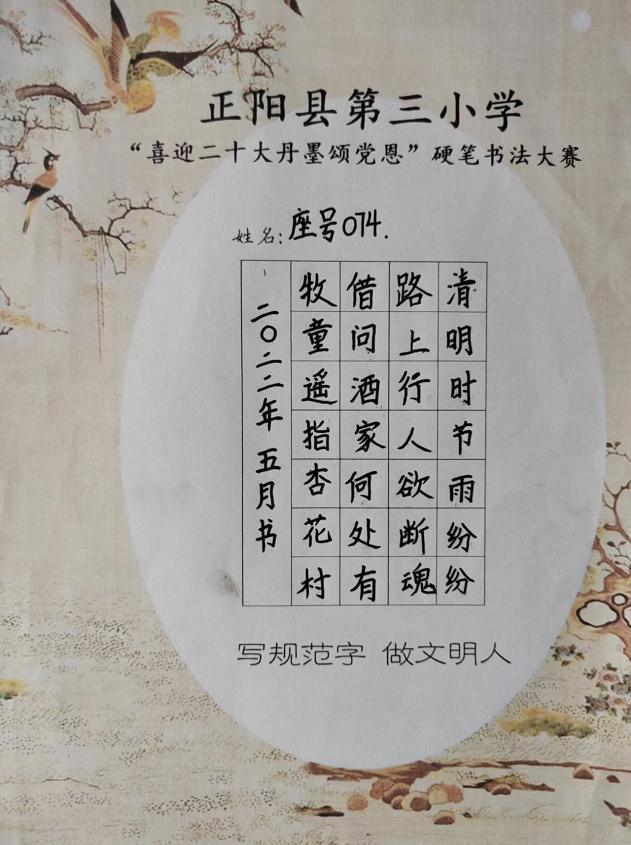 正阳县第三小学
“喜迎二十大丹墨颂党恩”硬笔书法大赛
姓名：座号074.
清明时节雨纷纷
路上行人欲断魂
借问酒家何处有
牧童遥指杏花村
二〇二二年五月书
写规范字 做文明人